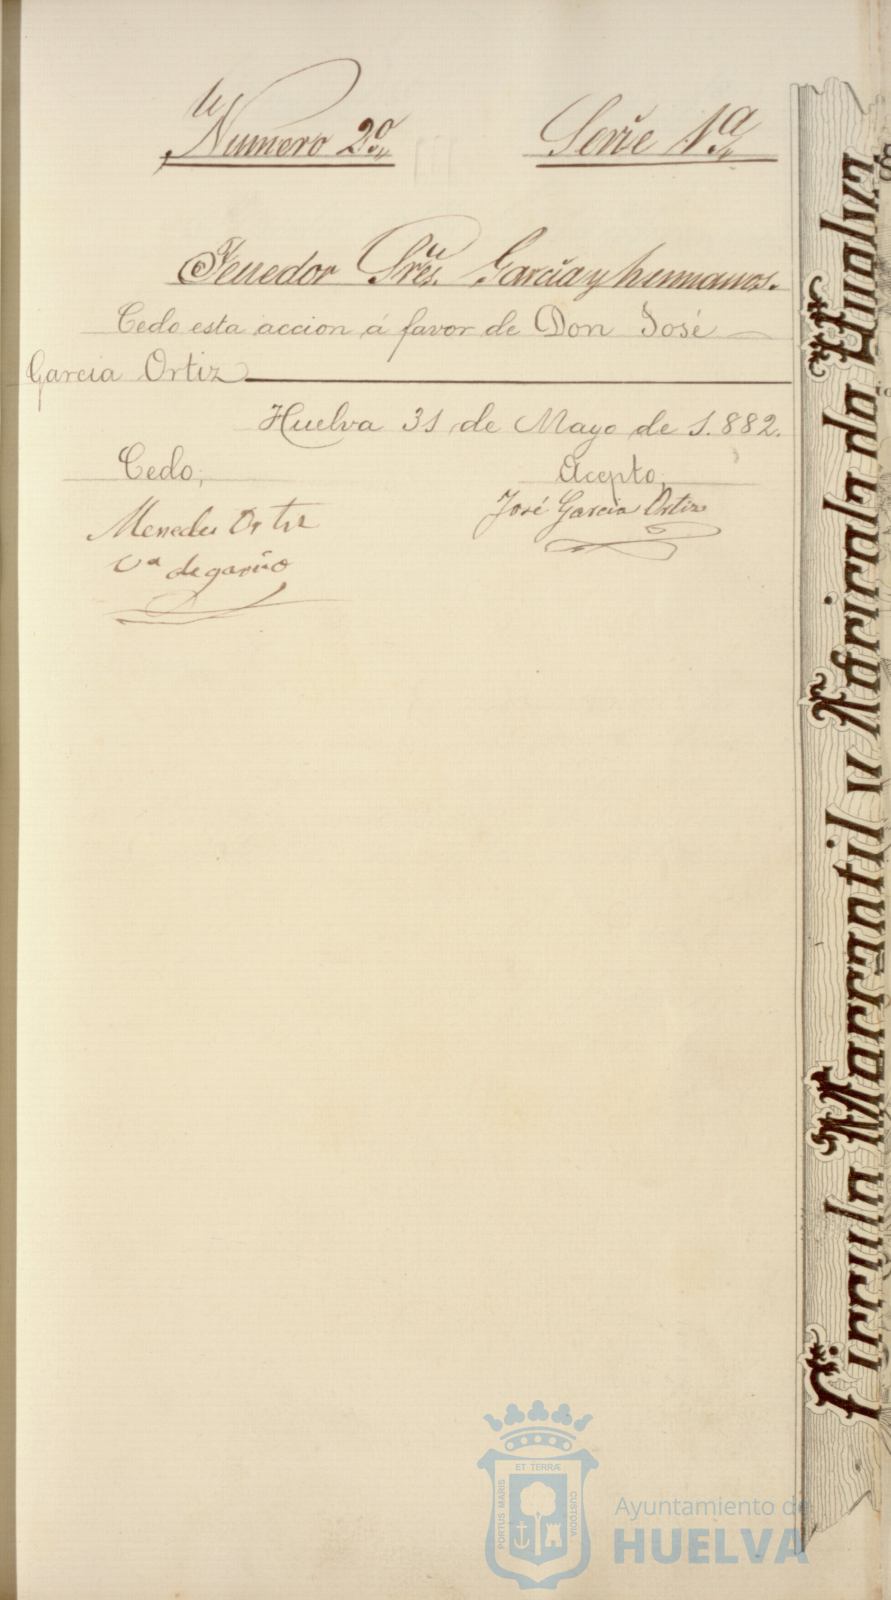 Número 2º, Serie 1ª,
Tenedor Sres. García y hermanos.
Cedo esta accion á favor de Don José
Garcia Ortiz
Huelva 31 de Mayo de 1.882.
Cedo, Acepto,
Ortiz José Garcia Ortiz
Vª de
Círculo Mercantil y Agrícola de Huelva
ET TERRÆ
PORTUS MARIS
CUSTODIA
Ayuntamiento de
HUELVA